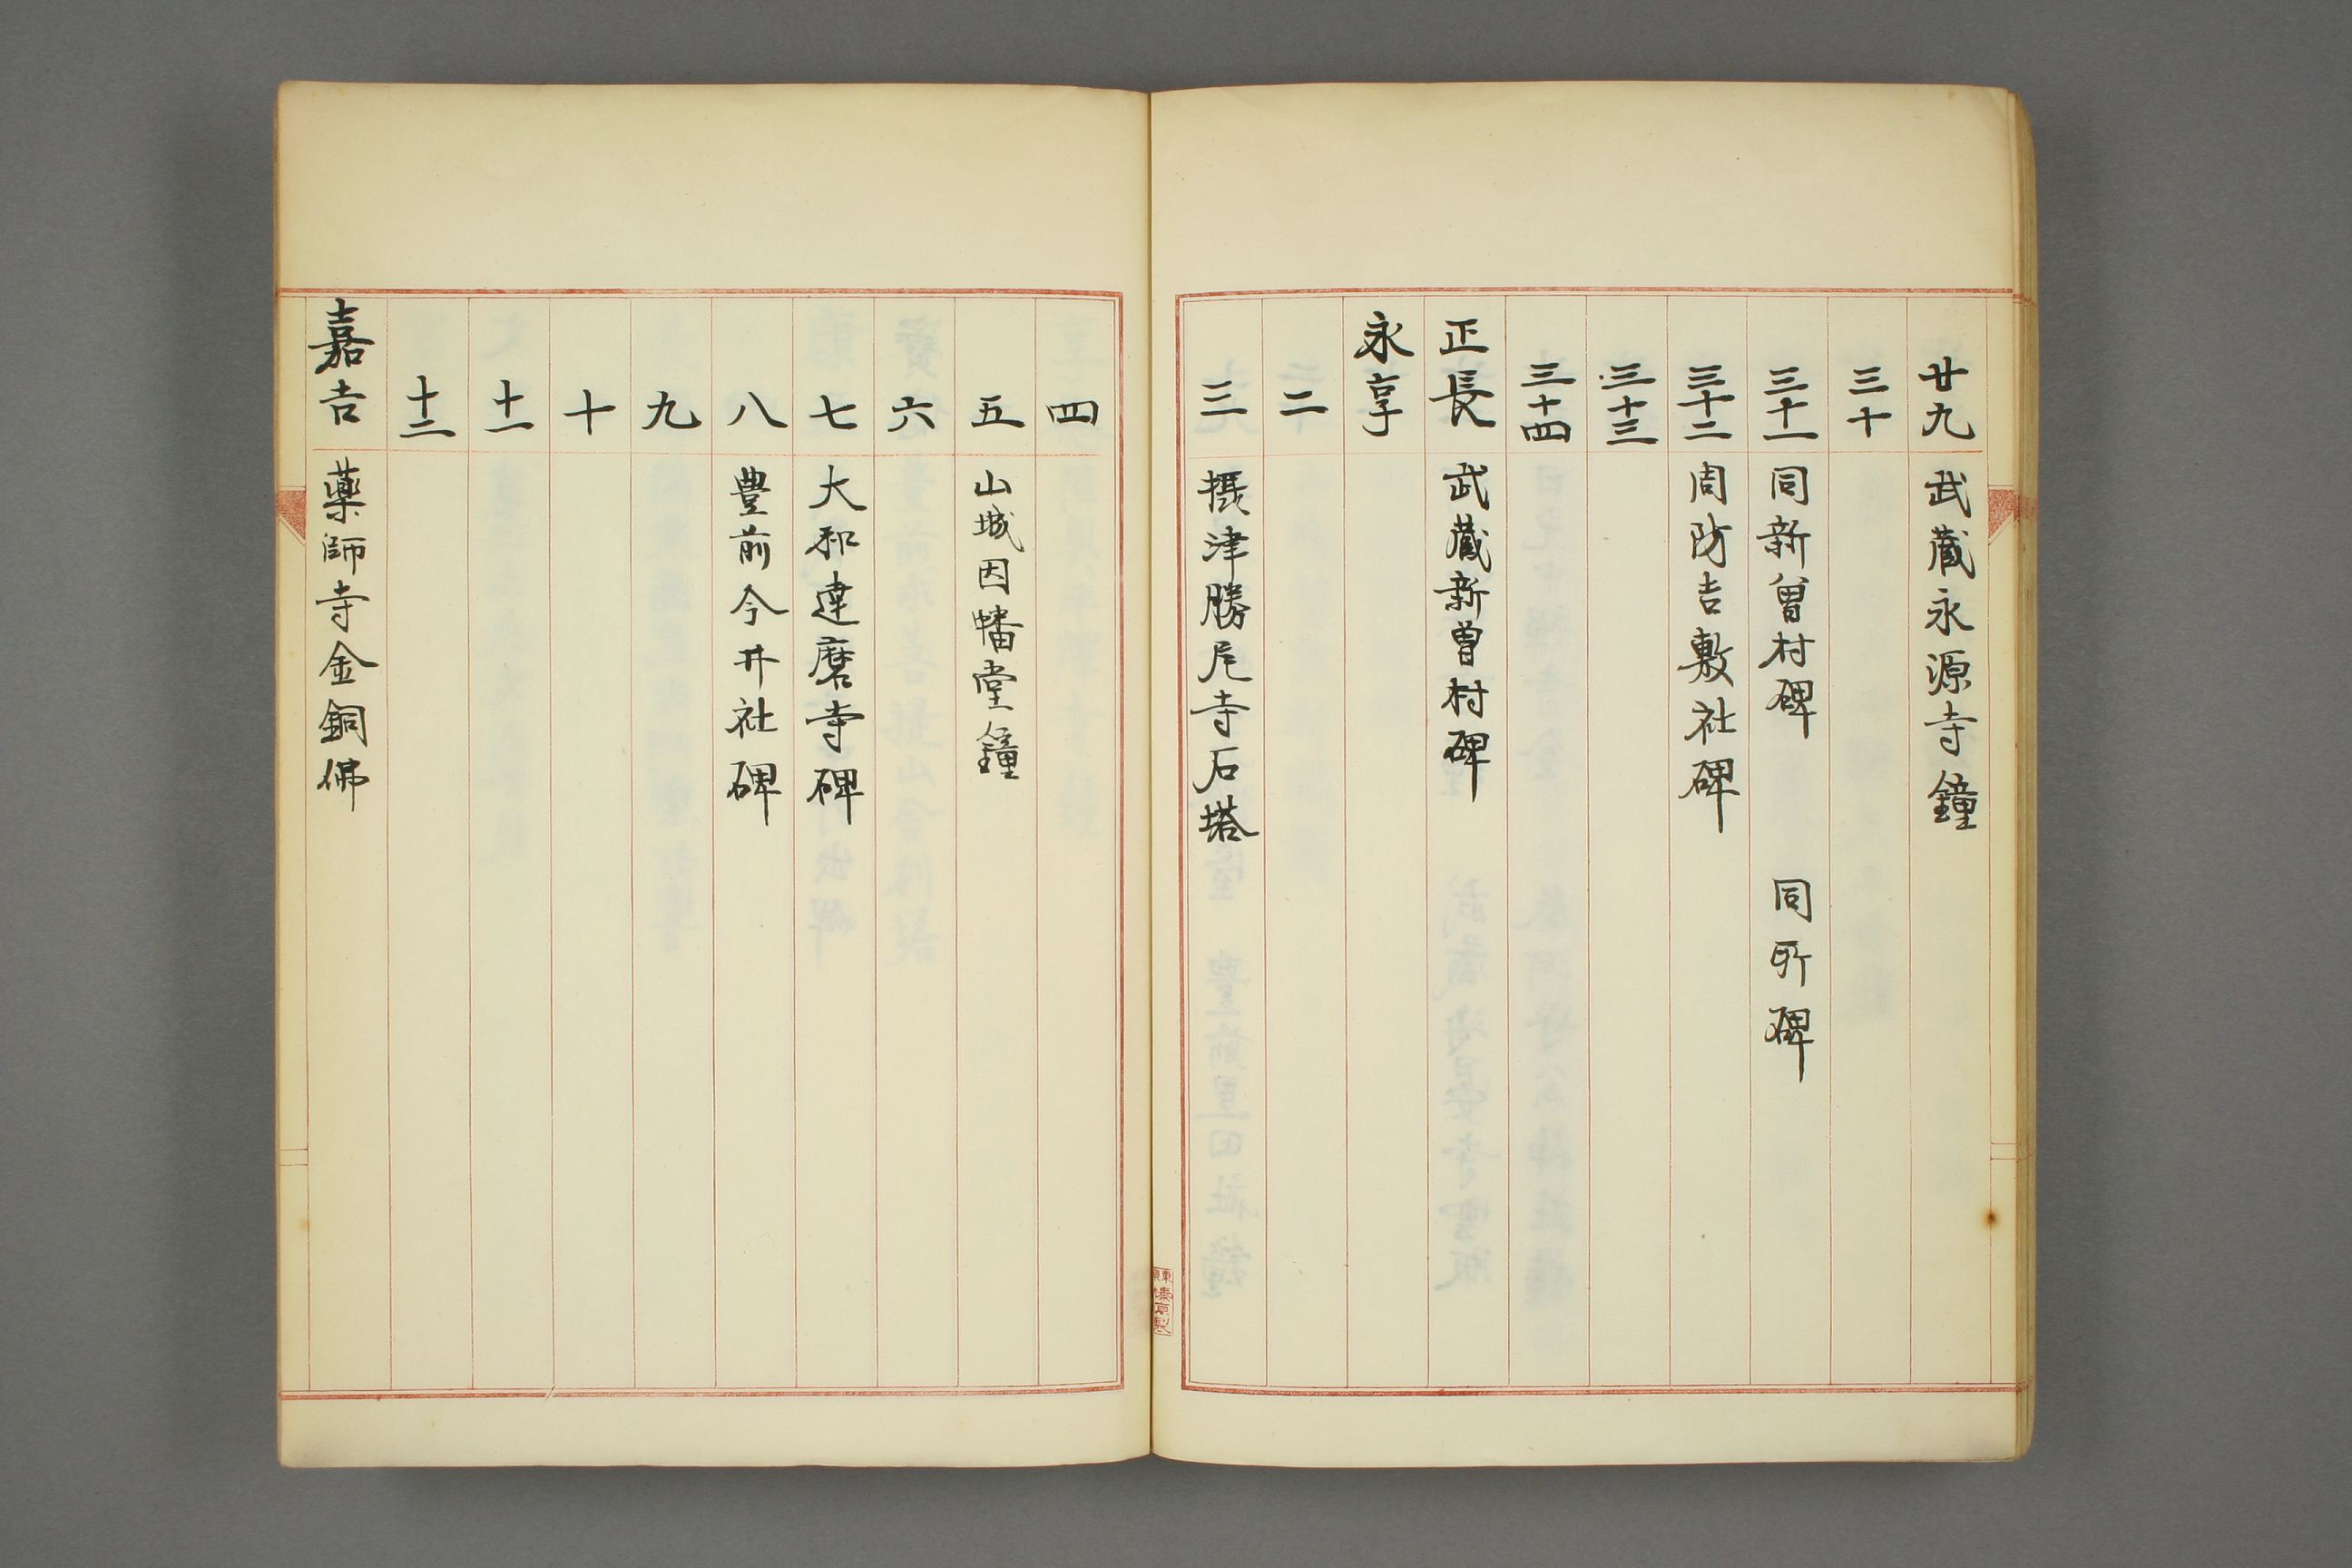 廿九 武蔵永源寺鐘
三十
三十一 同新曽村碑 同所碑
三十二 周防吉敷社碑
三十三
三十四
正長 武蔵新曽村碑
永享
二
三 摂津勝尾寺石塔
四
五 山城因幡堂鐘
六
七 大和達磨寺碑
八 豊前今井社碑
九
十
十一
十二
嘉吉 薬師寺金銅佛